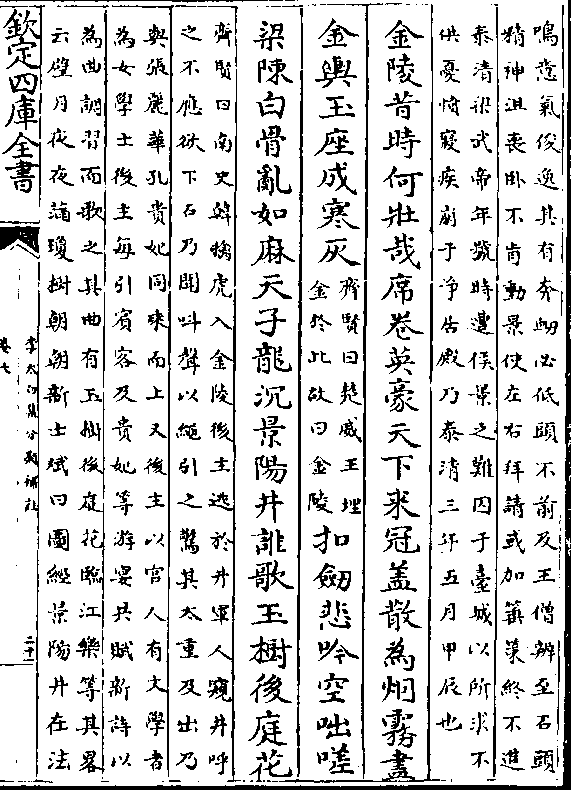 鳴悲氣俊逸其有奔衂必低頭不前及王僧辨至石頭
精神沮喪卧不肯動景使左右拜請或加箠策終不進
泰清梁武帝年號時遭侯景之難囚于臺城以所求不
供憂憤寢疾崩于净居殿乃泰清三年五月甲辰也
金陵昔時何壯哉席卷英豪天下來冠盖散為烟霧盡
金輿玉座成寒灰
齊賢曰楚威王埋
金於此故曰金陵
扣劒悲吟空咄嗟
梁陳白骨亂如麻天子龍沉景陽井誰歌玉樹後庭花
齊賢曰南史韓擒虎入金陵後主逃於井軍人窺井呼
之不應欲下石乃聞呌聲以繩引之驚其太重及出乃
與張麗華孔貴妃同乗而上又後主以宫人有文學者
為女學士後主每引賔客及貴妃等游宴共賦新詩以
為曲調習而歌之其曲有玉樹後庭花臨江樂等其畧
云璧月夜夜滿瓊樹朝朝新士贇曰圖經景陽井在法
欽定四庫全書
李太白集分類補註
卷七
二十一